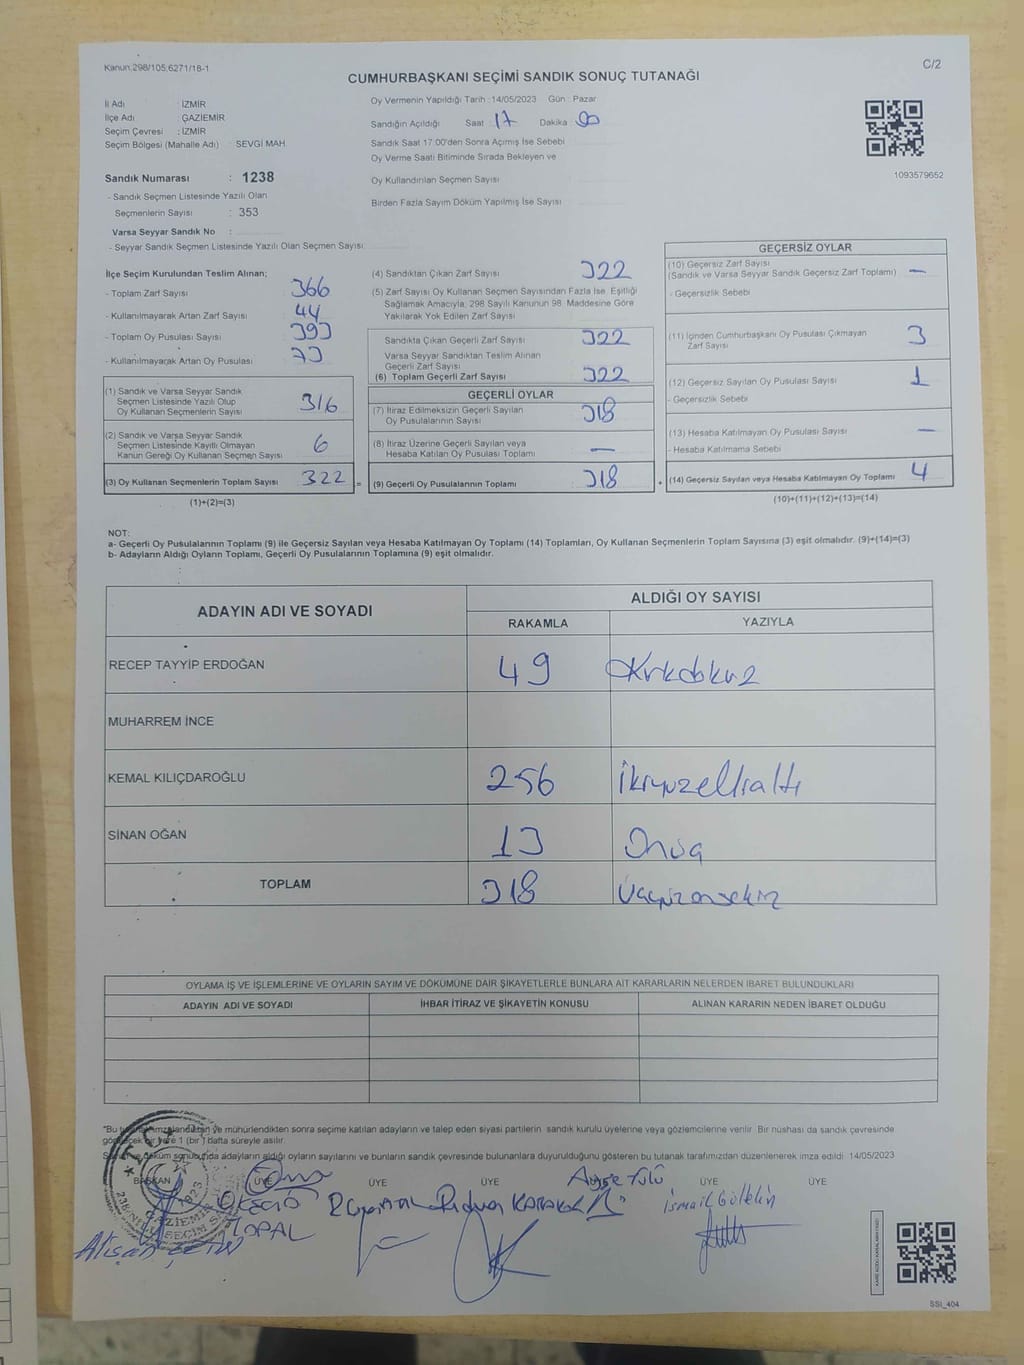 Kanun:298/105;6271/18-1
C/2
CUMHURBAŞKANI SEÇİMİ SANDIK SONUÇ TUTANAĞI
İl Adı : İZMİR
İlçe Adı : GAZİEMİR
Seçim Çevresi : İZMİR
Seçim Bölgesi (Mahalle Adı) : SEVGİ MAH.
Sandık Numarası : 1238
- Sandık Seçmen Listesinde Yazılı Olan
Seçmenlerin Sayısı : 353
Varsa Seyyar Sandık No :
- Seyyar Sandık Seçmen Listesinde Yazılı Olan Seçmen Sayısı:
Oy Vermenin Yapıldığı Tarih : 14/05/2023 Gün : Pazar
Sandığın Açıldığı Saat 17 Dakika 00
Sandık Saat 17:00'den Sonra Açımış İse Sebebi
Oy Verme Saati Bitiminde Sırada Bekleyen ve
Oy Kullandırılan Seçmen Sayısı
Birden Fazla Sayım Döküm Yapılmış İse Sayısı
1093579652
İlçe Seçim Kurulundan Teslim Alınan;
- Toplam Zarf Sayısı 366
- Kullanılmayarak Artan Zarf Sayısı 44
- Toplam Oy Pusulası Sayısı 393
- Kullanılmayacak Artan Oy Pusulası 73
(1) Sandık ve Varsa Seyyar Sandık
Seçmen Listesinde Yazılı Olup
Oy Kullanan Seçmenlerin Sayısı 316
(2) Sandık ve Varşa Seyyar Sandık
Seçmen Listesinde Kayıtlı Olmayan
Kanun Gereği Oy Kullanan Seçmen Sayısı 6
(3) Oy Kullanan Seçmenlerin Toplam Sayısı 322 =
(1)+(2)=(3)
(4) Sandıktan Çıkan Zarf Sayısı 322
(5) Zarf Sayısı Oy Kullanan Seçmen Sayısından Fazla İse, Eşitliği
Sağlamak Amacıyla, 298 Sayılı Kanunun 98. Maddesine Göre
Yakılarak Yok Edilen Zarf Sayısı
Sandıkta Çıkan Geçerli Zarf Sayısı 322
Varsa Seyyar Sandıktan Teslim Alınan
Geçerli Zarf Sayısı
(6) Toplam Geçerli Zarf Sayısı 322
GEÇERLİ OYLAR
(7) İtiraz Edilmeksizin Geçerli Sayılan
Oy Pusulalarının Sayısı 318
(8) İtiraz Üzerine Geçerli Sayılan veya
Hesaba Katılan Oy Pusulası Toplamı —
(9) Geçerli Oy Pusulalarının Toplamı 318 +
GEÇERSİZ OYLAR
(10) Geçersiz Zarf Sayısı
(Sandık ve Varsa Seyyar Sandık Geçersiz Zarf Toplamı) —
- Geçersizlik Sebebi
(11) İçinden Cumhurbaşkanı Oy Pusulası Çıkmayan
Zarf Sayısı 3
(12) Geçersiz Sayılan Oy Pusulası Sayısı 1
- Geçersizlik Sebebi
(13) Hesaba Katılmayan Oy Pusulası Sayısı —
- Hesaba Katılmama Sebebi
(14) Geçersiz Sayılan veya Hesaba Katılmayan Oy Toplamı 4
(10)+(11)+(12)+(13)=(14)
NOT:
a- Geçerli Oy Pusulalarının Toplamı (9) ile Geçersiz Sayılan veya Hesaba Katılmayan Oy Toplamı (14) Toplamları, Oy Kullanan Seçmenlerin Toplam Sayısına (3) eşit olmalıdır. (9)+(14)=(3)
b- Adayların Aldığı Oyların Toplamı, Geçerli Oy Pusulalarının Toplamına (9) eşit olmalıdır.
ADAYIN ADI VE SOYADI
ALDIĞI OY SAYISI
RAKAMLA YAZIYLA
RECEP TAYYİP ERDOĞAN 49 Kırkdokuz
MUHARREM İNCE
KEMAL KILIÇDAROĞLU 256 İkiyüzellialtı
SİNAN OĞAN 13 Onüç
TOPLAM 318 Üçyüzonsekiz
OYLAMA İŞ VE İŞLEMLERİNE VE OYLARIN SAYIM VE DÖKÜMÜNE DAİR ŞİKAYETLERLE BUNLARA AİT KARARLARIN NELERDEN İBARET BULUNDUKLARI
ADAYIN ADI VE SOYADI İHBAR İTİRAZ VE ŞİKAYETİN KONUSU ALINAN KARARIN NEDEN İBARET OLDUĞU
"Bu imzalandıktan ve mühürlendikten sonra seçime katılan adayların ve talep eden siyasi partilerin, sandık kurulu üyelerine veya gözlemcilerine verilir. Bir nüshası da sandık çevresinde
bir yere 1 (bir ) hafta süreyle asılır.
döküm sonucunda adayların aldığı oyların sayılarını ve bunların sandık çevresinde bulunanlara duyurulduğunu gösteren bu tutanak tarafımızdan düzenlenerek imza edildi. 14/05/2023
BAŞKAN ÜYE ÜYE ÜYE ÜYE ÜYE ÜYE
Ayşe Tülü
Rıdvan KARAKOL
İsmail Gültekin
TOPAL
Alişan
T.C.
1923
GAZİEMİR
SSI_404